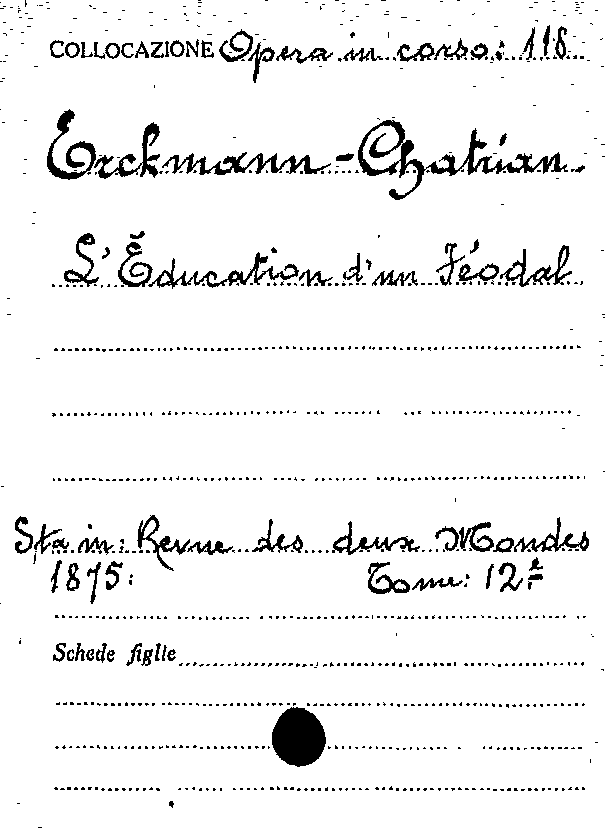 COLLOCAZIONE Opera in corso: 118
Erckmann-Chatrian.
L'Éducation d'un Féodal
Sta in: Revue des deux Mondes
1875: Tome: 12e
Schede figlie